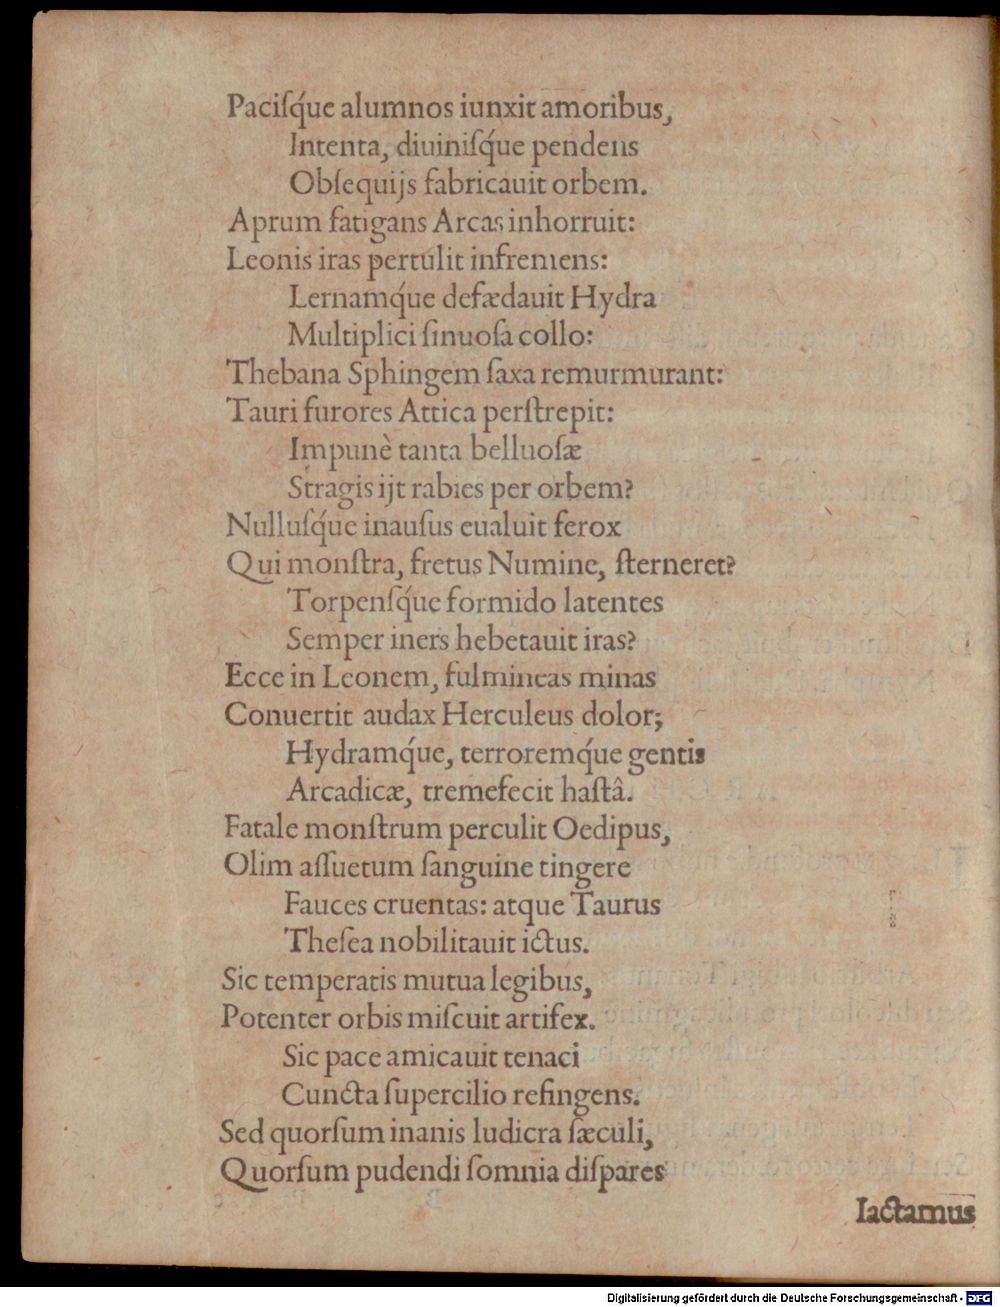 Paciſq́ue alumnos iunxit amoribus,
Intenta, diuiniſq́ue pendens
Obſequijs fabricauit orbem.
Aprum fatigans Arcas inhorruit:
Leonis iras pertulit infremens:
Lernamq́ue defædauit Hydra
Multiplici ſinuoſa collo:
Thebana Sphingem ſaxa remurmurant:
Tauri furores Attica perſtrepit:
Impunè tanta belluoſæ
Stragis ijt rabies per orbem?
Nulluſq́ue inauſus eualuit ferox
Qui monſtra, fretus Numine, ſterneret?
Torpenſq́ue formido latentes
Semper iners hebetauit iras?
Ecce in Leonem, fulmineas minas
Conuertit audax Herculeus dolor;
Hydramq́ue, terroremq́ue gentis
Arcadicæ, tremefecit haſtâ.
Fatale monſtrum perculit Oedipus,
Olim aſſuetum ſanguine tingere
Fauces cruentas: atque Taurus
Theſea nobilitauit ictus.
Sic temperatis mutua legibus,
Potenter orbis miſcuit artifex.
Sic pace amicauit tenaci
Cuncta ſupercilio refingens.
Sed quorſum inanis ludicra ſæculi,
Quorſum pudendi ſomnia diſpares
Iactamus
Digitalisierung gefördert durch die Deutsche Forschungsgemeinschaft - DFG